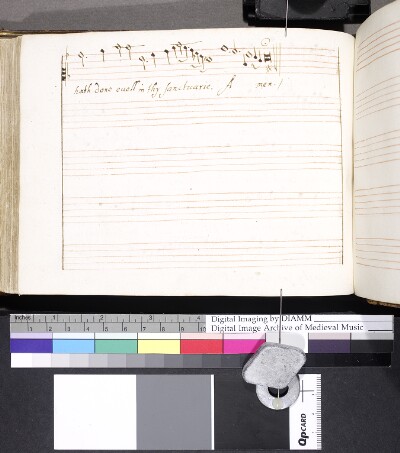 hath done evell in thy sanctuarie. A men.
inches 1 2 3 4
1 2 3 4 5 6 7 8 9 10
Digital Imaging by DIAMM
Digital Image Archive of Medieval Music
QPCARD